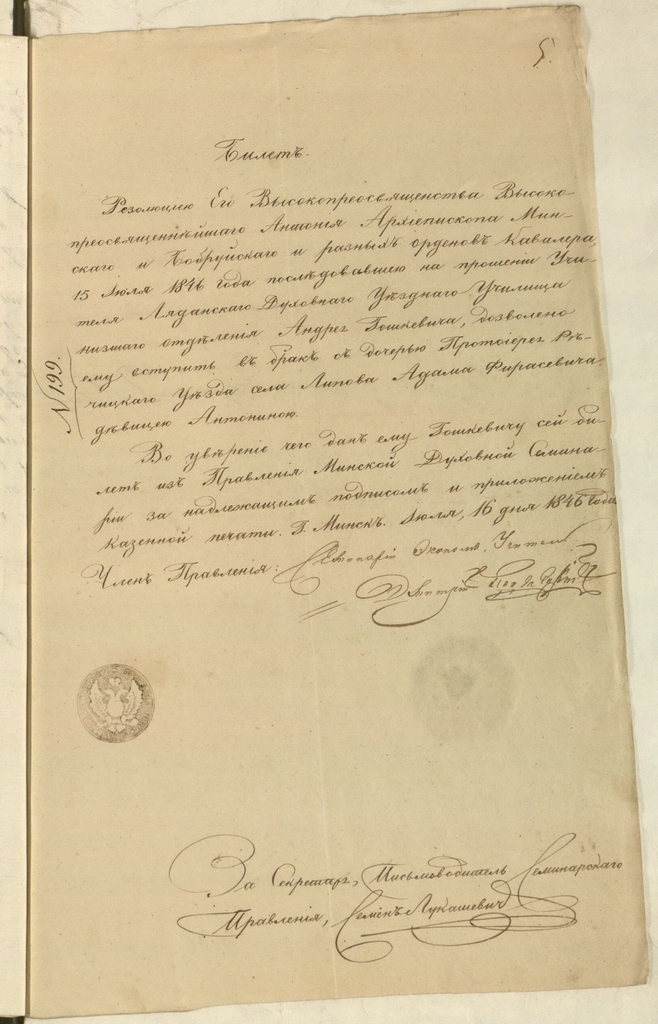 5.
Билетъ.
Резолюціею Его Высокопреосвященства Высоко-
преосвященнѣйшаго Антонія Архіепископа Мин-
скаго и Бобруйскаго и разныхъ орденовъ Кавалера,
15 Июля 1846 года послѣдовавшею на прошеніи Учи-
теля Ляданскаго Духовнаго Уѣзднаго Училища
низшаго отдѣленія Андрея Гошкевича, дозволено
ему вступить въ бракъ съ дочерью Протоіерея Рѣ-
чицкаго Уѣзда села Липова Адама Фирасевича,
дѣвицею Антониною.
№ 199.
Во увѣреніе чего данъ ему Гошкевичу сей би-
летъ изъ Правленія Минской Духовной Семина-
ріи за надлежащимъ подписомъ и приложеніемъ
казенной печати. Г. Минскъ. Июля, 16 дня 1846 года
Членъ Правленія: Экономъ, Учитель
Дмитрій
За Секретаря, Письмоводитель Семинарскаго
Правленія, Семенъ Лукашевичъ